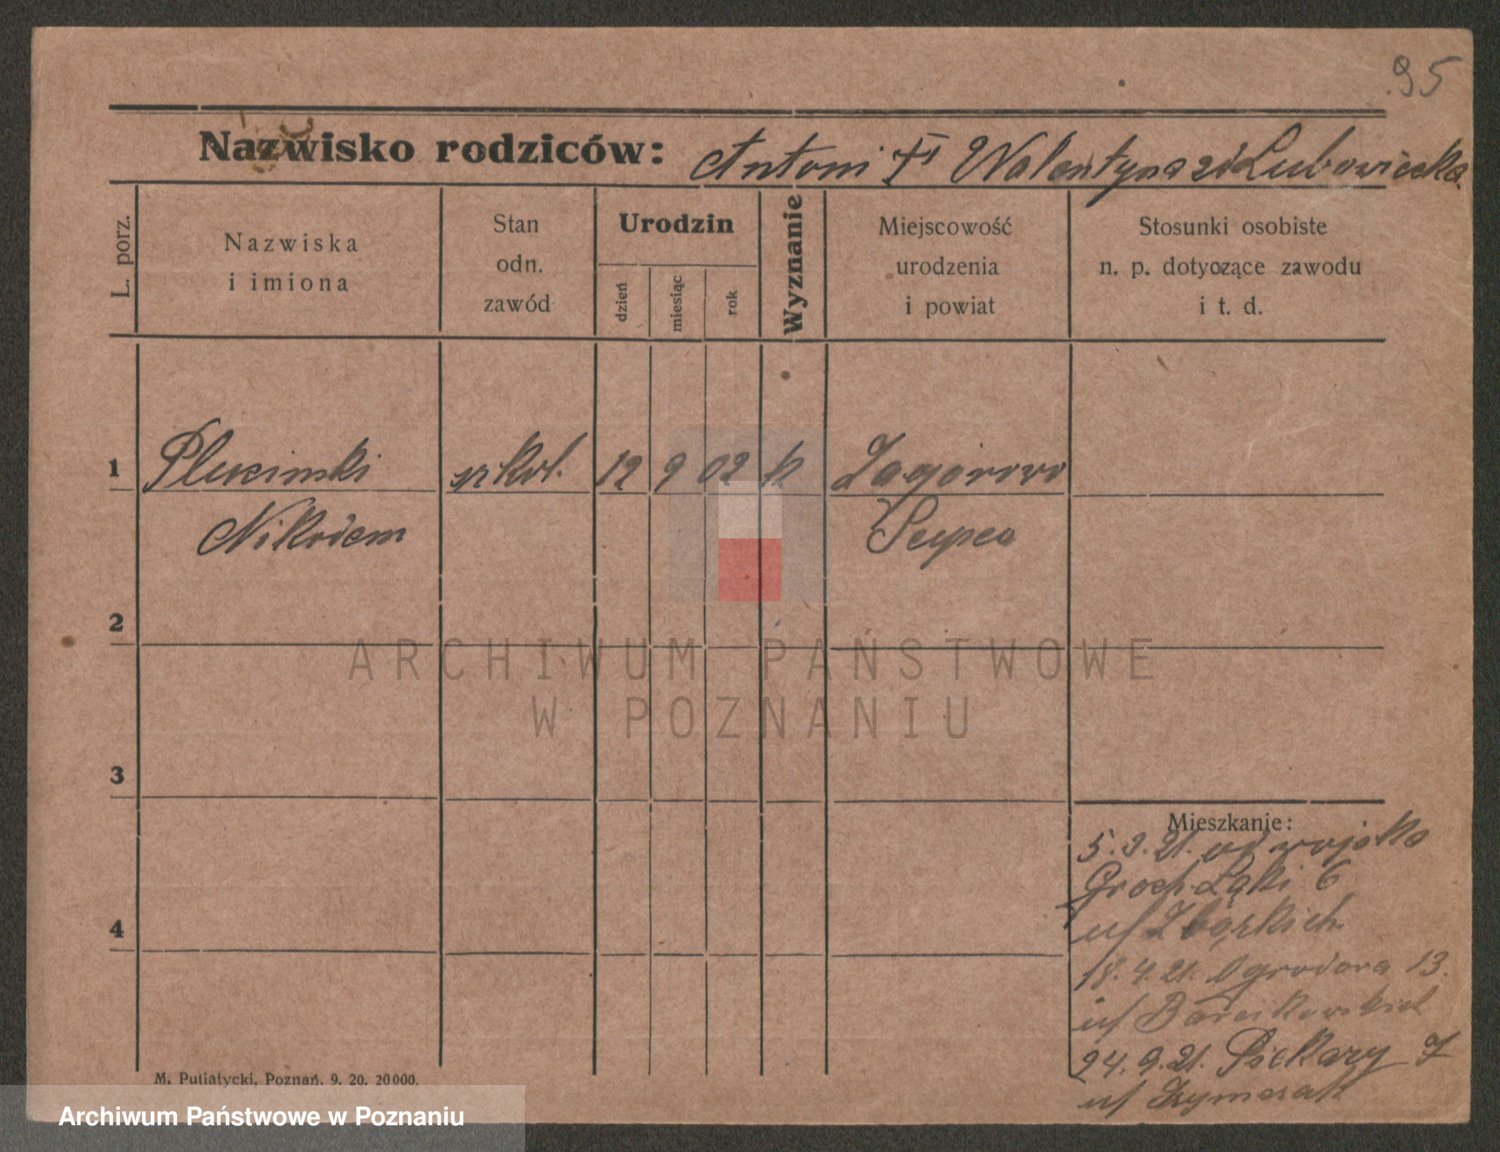 95
Nazwisko rodziców: Antoni Walentyna zd Lubowiecka
L. porz.
Nazwiska
i imiona
Stan
odn.
zawód
Urodzin
dzień
miesiąc
rok
Wyznanie
Miejscowość
urodzenia
i powiat
Stosunki osobiste
n. p. dotyczące zawodu
i t. d.
1 Plucinski 12 9 02 k Zagorowo
Nikodem Supca
2
3
4
Mieszkanie:
5.3.21. od wojska
Groch. Łąki 6
u/ Zbąrkich
18.4.21. Ogrodowa 13.
u/
24.9.21. Piekary 7
u/ Szymczak
M. Putiatycki, Poznań. 9. 20. 20000.
ARCHIWUM PAŃSTWOWE
W POZNANIU
Archiwum Państwowe w Poznaniu